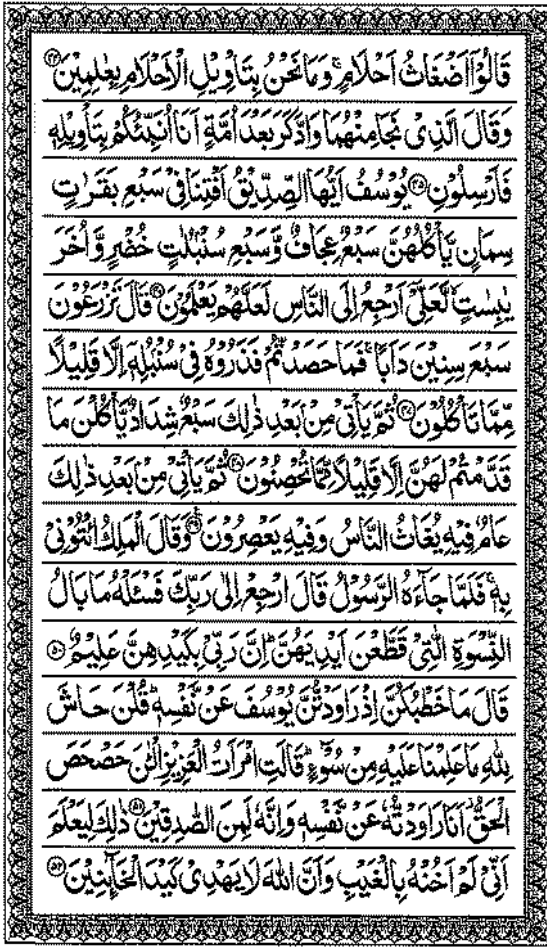 قَالُوْۤا اَضْغَاثُ اَحْلَامٍ ۚ وَمَا نَحْنُ بِتَاْوِيْلِ الْاَحْلَامِ بِعٰلِمِيْنَ ﴿۴۴﴾
وَقَالَ الَّذِيْ نَجَا مِنْهُمَا وَادَّكَرَ بَعْدَ اُمَّةٍ اَنَا اُنَبِّئُكُمْ بِتَاْوِيْلِهٖ
فَاَرْسِلُوْنِ ﴿۴۵﴾ يُوْسُفُ اَيُّهَا الصِّدِّيْقُ اَفْتِنَا فِيْ سَبْعِ بَقَرٰتٍ
سِمَانٍ يَّاْكُلُهُنَّ سَبْعٌ عِجَافٌ وَّسَبْعِ سُنْۢبُلٰتٍ خُضْرٍ وَّاُخَرَ
يٰبِسٰتٍ ۙ لَّعَلِّيْۤ اَرْجِعُ اِلَى النَّاسِ لَعَلَّهُمْ يَعْلَمُوْنَ ﴿۴۶﴾ قَالَ تَزْرَعُوْنَ
سَبْعَ سِنِيْنَ دَاَبًا ۚ فَمَا حَصَدْتُّمْ فَذَرُوْهُ فِيْ سُنْۢبُلِهٖۤ اِلَّا قَلِيْلًا
مِّمَّا تَاْكُلُوْنَ ﴿۴۷﴾ ثُمَّ يَاْتِيْ مِنْۢ بَعْدِ ذٰلِكَ سَبْعٌ شِدَادٌ يَّاْكُلْنَ مَا
قَدَّمْتُمْ لَهُنَّ اِلَّا قَلِيْلًا مِّمَّا تُحْصِنُوْنَ ﴿۴۸﴾ ثُمَّ يَاْتِيْ مِنْۢ بَعْدِ ذٰلِكَ
عَامٌ فِيْهِ يُغَاثُ النَّاسُ وَفِيْهِ يَعْصِرُوْنَ ﴿۴۹﴾ وَقَالَ الْمَلِكُ ائْتُوْنِيْ
بِهٖ ۚ فَلَمَّا جَآءَهُ الرَّسُوْلُ قَالَ ارْجِعْ اِلٰى رَبِّكَ فَسْـَٔلْهُ مَا بَالُ
النِّسْوَةِ الّٰتِيْ قَطَّعْنَ اَيْدِيَهُنَّ ؕ اِنَّ رَبِّيْ بِكَيْدِهِنَّ عَلِيْمٌ ﴿۵۰﴾
قَالَ مَا خَطْبُكُنَّ اِذْ رَاوَدْتُّنَّ يُوْسُفَ عَنْ نَّفْسِهٖ ؕ قُلْنَ حَاشَ
لِلّٰهِ مَا عَلِمْنَا عَلَيْهِ مِنْ سُوْٓءٍ ؕ قَالَتِ امْرَاَتُ الْعَزِيْزِ الْـٰٔنَ حَصْحَصَ
الْحَقُّ ۫ اَنَا رَاوَدْتُّهٗ عَنْ نَّفْسِهٖ وَاِنَّهٗ لَمِنَ الصّٰدِقِيْنَ ﴿۵۱﴾ ذٰلِكَ لِيَعْلَمَ
اَنِّيْ لَمْ اَخُنْهُ بِالْغَيْبِ وَاَنَّ اللّٰهَ لَا يَهْدِيْ كَيْدَ الْخَآئِنِيْنَ ﴿۵۲﴾